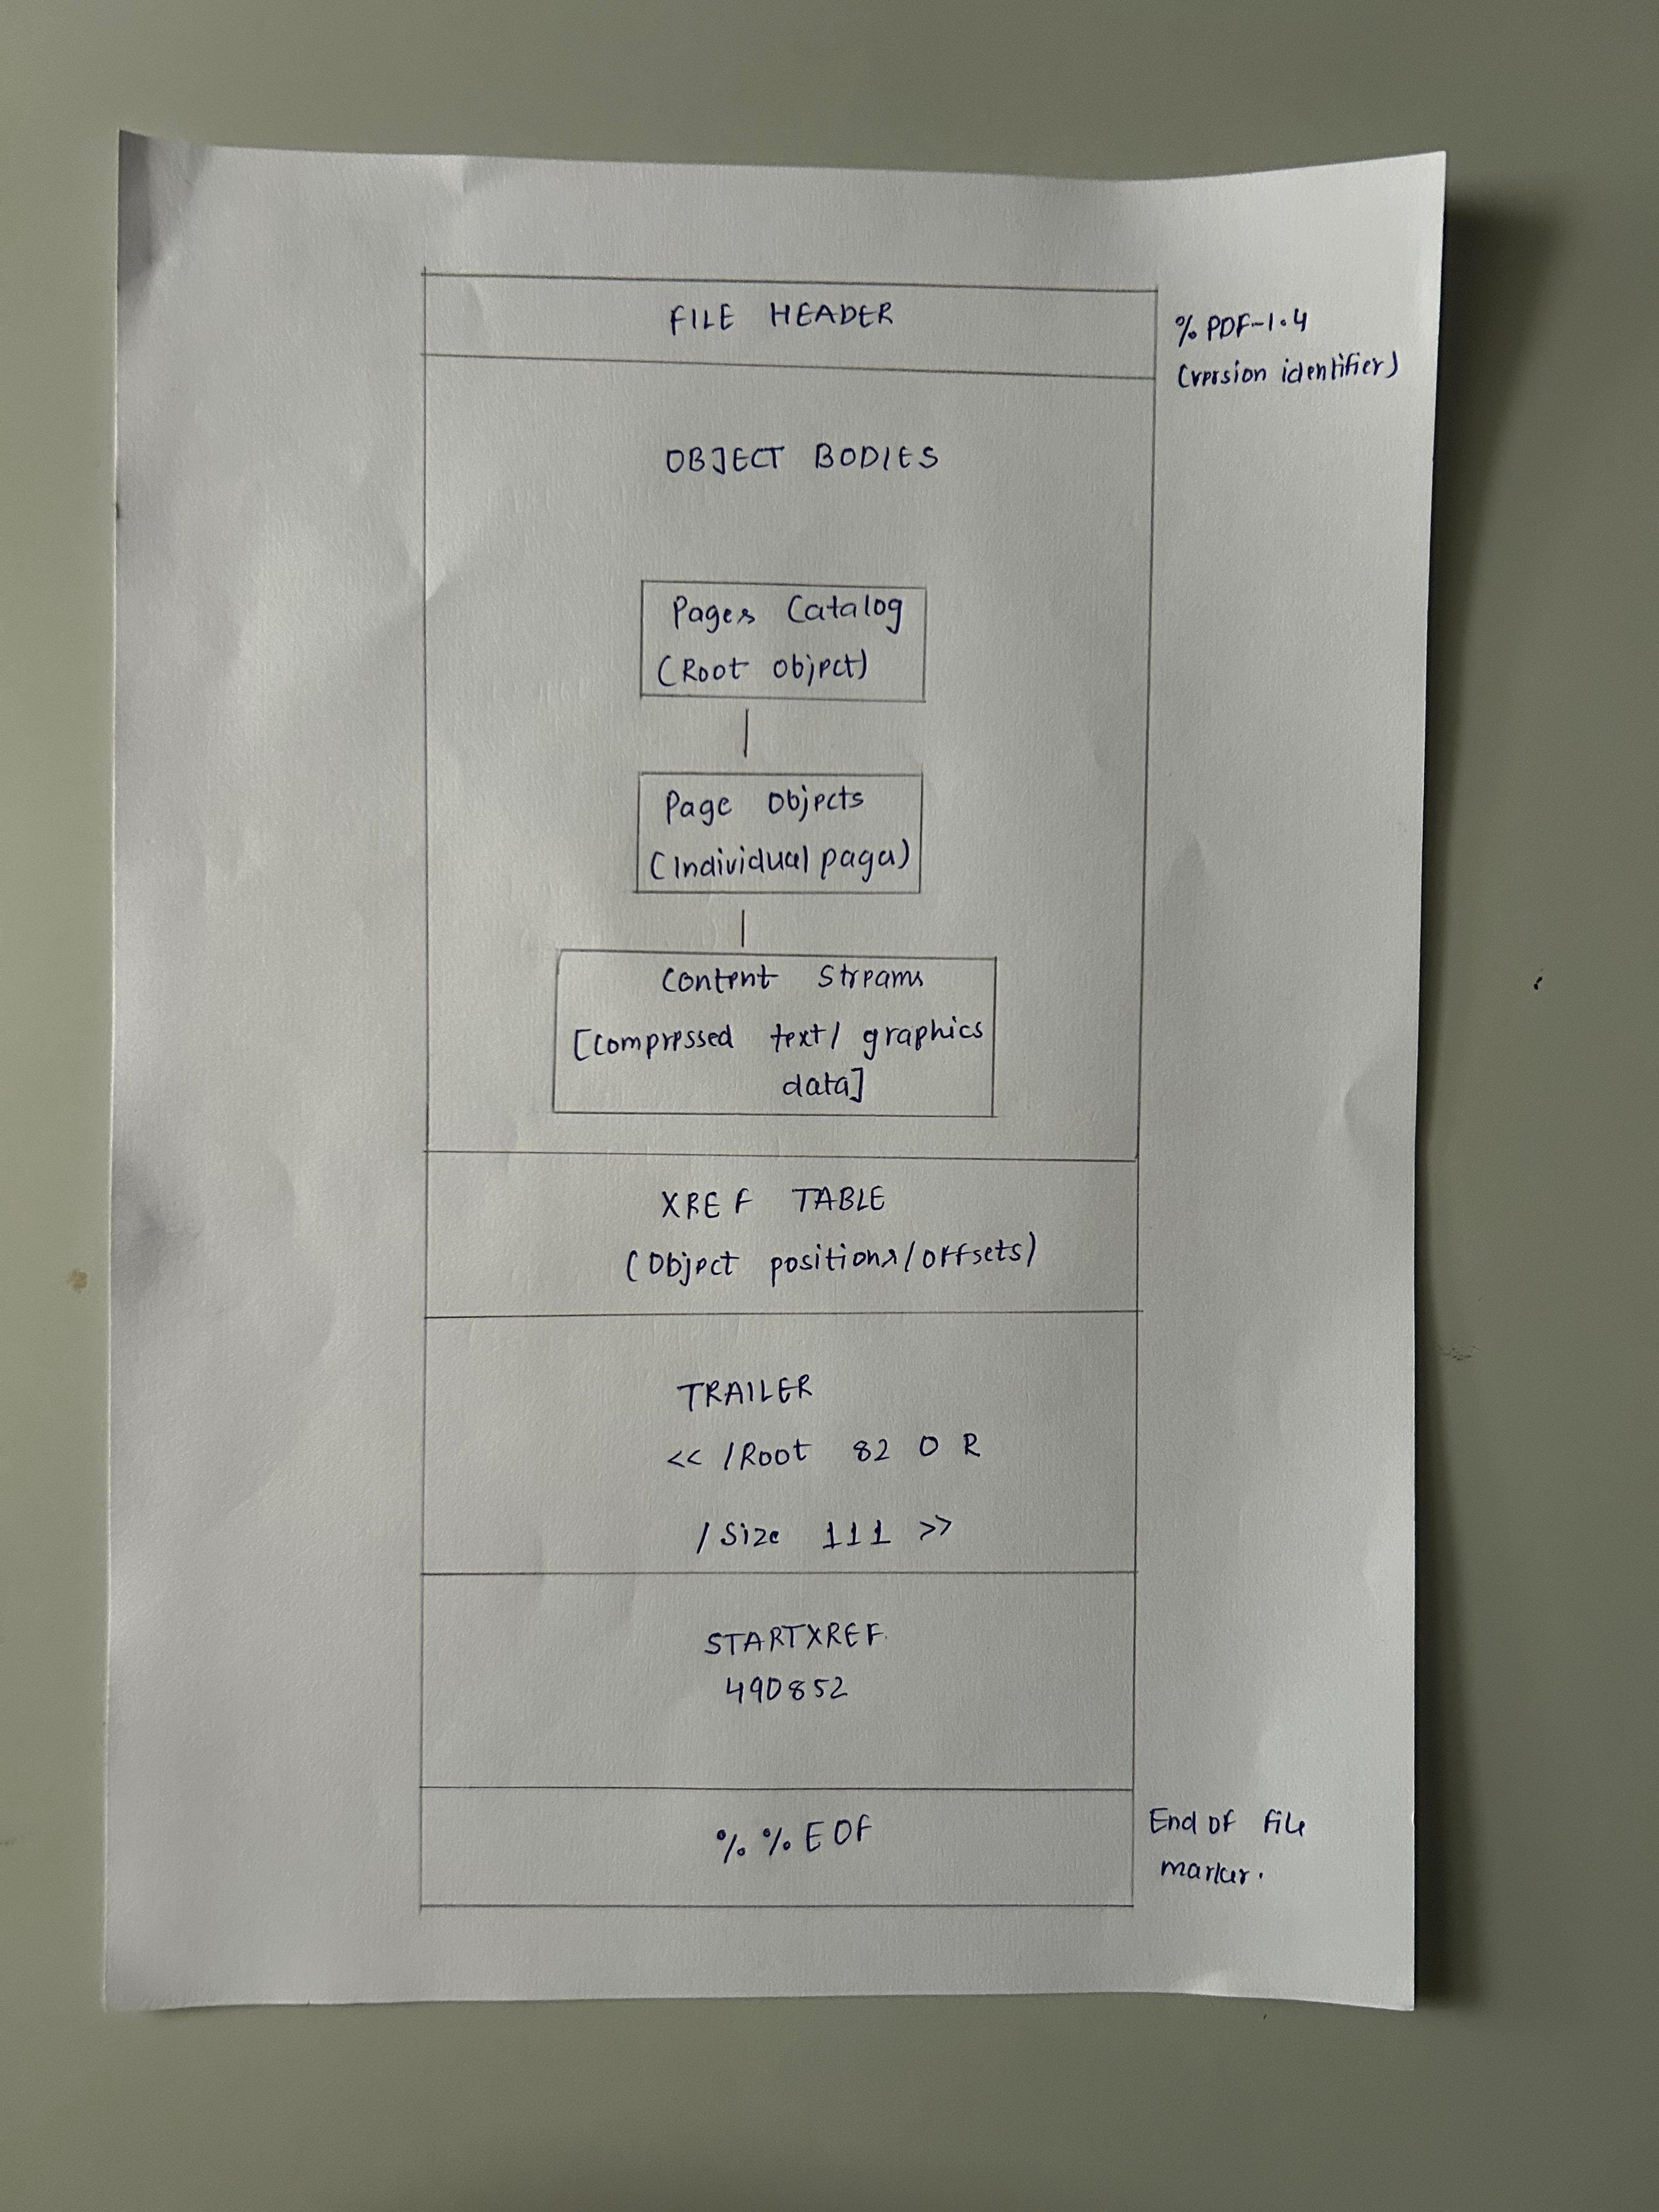 FILE HEADER
% PDF-1.4
(version identifier)
OBJECT BODIES
Pages Catalog
(Root object)
Page Objects
(Individual pages)
Content Streams
[compressed text/ graphics
data]
XREF TABLE
(Object positions/offsets)
TRAILER
<< /Root 82 0 R
/Size 111 >>
STARTXREF
490852
%%EOF
End of file
marker.